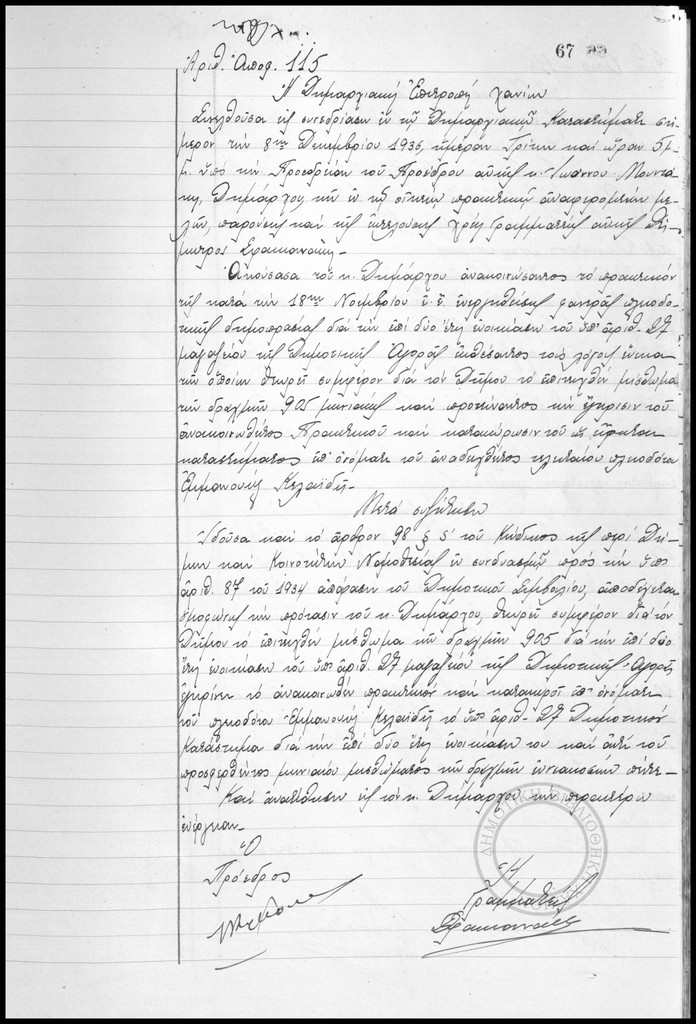 67
Ἀριθ. Ἀποφ. 115
Ἡ Δημαρχιακή Ἐπιτροπή Χανίων
Συνελθοῦσα εἰς συνεδρίασιν ἐν τῷ Δημαρχιακῷ Καταστήματι σή-
μερον τήν 8ην Δεκεμβρίου 1936, ἡμέραν Τρίτην καί ὥραν 5 μ.
μ. ὑπό τήν Προεδρείαν τοῦ Προέδρου αὐτῆς κ. Ἰωάννου Μουντά-
κη, Δημάρχου, τῶν ἐν τῷ οἰκείῳ πρακτικῷ ἀναφερομένων με-
λῶν, παρούσης καί τῆς ἐκτελούσης χρέη Γραμματέως αὐτῆς
Σφακιανάκη.-
Ἀκούσασα τοῦ κ. Δημάρχου ἀνακοινώσαντος τό πρακτικόν
τῆς κατά τήν 18ην Νοεμβρίου ἐ. ἔ. ἐνεργηθείσης φανερᾶς πλειοδο-
τικῆς δημοπρασίας διά τήν ἐπί δύο ἔτη ἐνοικίασιν τοῦ ὑπ' ἀριθ. 27
μαγαζείου τῆς Δημοτικῆς Ἀγορᾶς ἐκθέσαντος τούς λόγους ἕνεκα
τῶν ὁποίων θεωρεῖ συμφέρον διά τόν Δῆμον τό ἐπιτευχθέν μίσθωμα
τῶν δραχμῶν 905 μηνιαίως καί προτείναντος τήν ἔγκρισιν τοῦ
ἀνακοινωθέντος Πρακτικοῦ καί κατακύρωσιν τοῦ ὡς εἴρηται
καταστήματος ἐπ' ὀνόματι τοῦ ἀναδειχθέντος τελευταίου πλειοδότου
Ἐμμανουήλ Κελαϊδῆ.-
Μετά συζήτησιν
Ἰδοῦσα καί τό ἄρθρον 98 § 5 τοῦ Κώδικος τῆς περί Δή-
μων καί Κοινοτήτων Νομοθεσίας ἐν συνδυασμῷ πρός τήν ὑπ'
ἀριθ. 87 τοῦ 1934 ἀπόφασιν τοῦ Δημοτικοῦ Συμβουλίου, ἀποδέχεται
ὁμοφώνως τήν πρότασιν τοῦ κ. Δημάρχου, θεωρεῖ συμφέρον διά τόν
Δῆμον τό ἐπιτευχθέν μίσθωμα τῶν δραχμῶν 905 διά τήν ἐπί δύο
ἔτη ἐνοικίασιν τοῦ ὑπ' ἀριθ. 27 μαγαζείου τῆς Δημοτικῆς Ἀγορᾶς
ἐγκρίνει τό ἀνακοινωθέν πρακτικόν καί κατακυροῖ ἐπ' ὀνόματι
τοῦ πλειοδότου Ἐμμανουήλ Κελαϊδῆ τό ὑπ' ἀριθ. 27 Δημοτικόν
Κατάστημα διά τήν ἐπί δύο ἔτη ἐνοικίασίν του καί ἀντί τοῦ
προσφερθέντος μηνιαίου μισθώματος τῶν δραχμῶν ἐννιακοσίων πέντε.-
Καί ἀνατίθησιν εἰς τόν κ. Δήμαρχον τήν περαιτέρω
ἐνέργειαν.-
Ὁ
Πρόεδρος
Ἡ
Γραμματεύς
Σφακιανάκη
ΔΗΜΟΤΙΚΗ ΒΙΒΛΙΟΘΗΚΗ